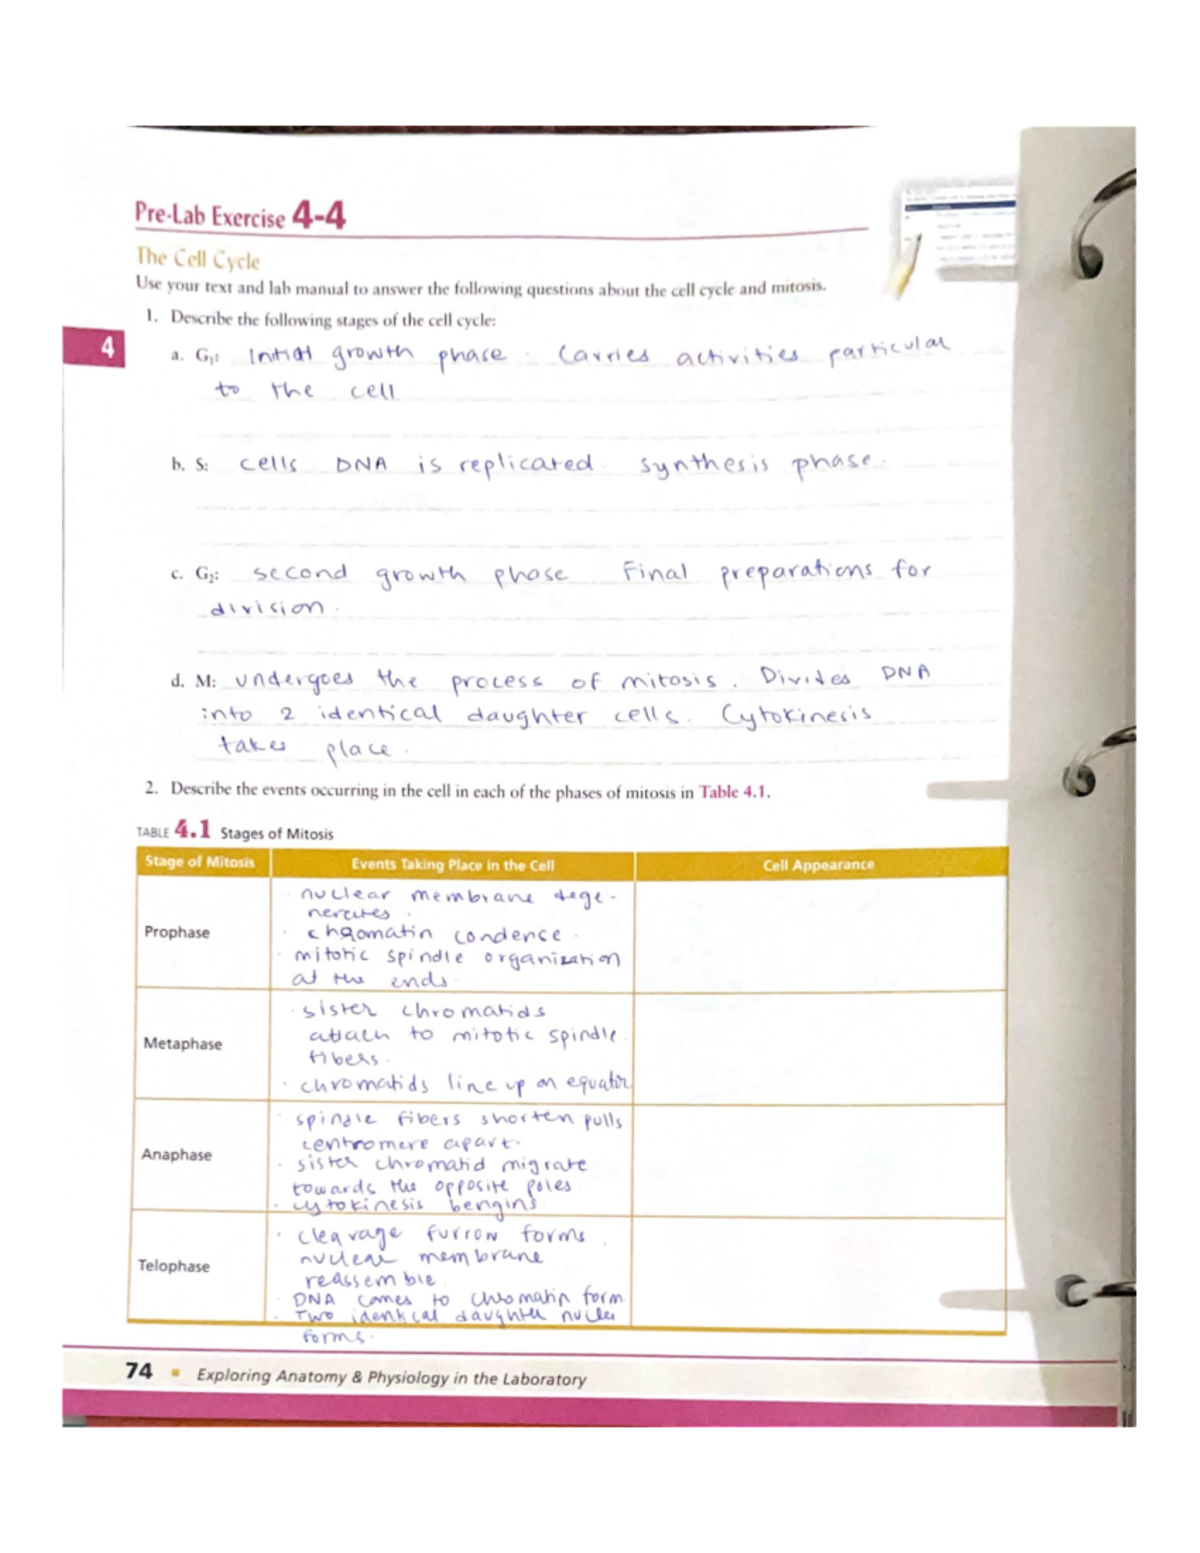 Pre-Lab Exercise 4-4
The Cell Cycle
Use your text and lab manual to answer the following questions about the cell cycle and mitosis.
1. Describe the following stages of the cell cycle:
4
a. G₁: Initial growth phase. Carries activities particular
to the cell
b. S: cells DNA is replicated. synthesis phase.
c. G₂: second growth phase Final preparations for
division.
d. M: undergoes the process of mitosis. Divides DNA
into 2 identical daughter cells. Cytokinesis
takes place.
2. Describe the events occurring in the cell in each of the phases of mitosis in Table 4.1.
TABLE 4.1 Stages of Mitosis
Stage of Mitosis Events Taking Place in the Cell Cell Appearance
Prophase
· nuclear membrane dege-
nerates.
· chromatin condense.
· mitotic spindle organization
at the ends.
Metaphase
· sister chromatids
attach to mitotic spindle
fibers.
· chromatids line up on equator
Anaphase
· spindle fibers shorten pulls
centromere apart.
· sister chromatid migrate
towards the opposite poles
· cytokinesis bengins
Telophase
· cleavage furrow forms.
nuclear membrane
reassemble.
· DNA comes to chromatin form.
· Two identical daughter nuclei
forms.
74 ▪ Exploring Anatomy & Physiology in the Laboratory